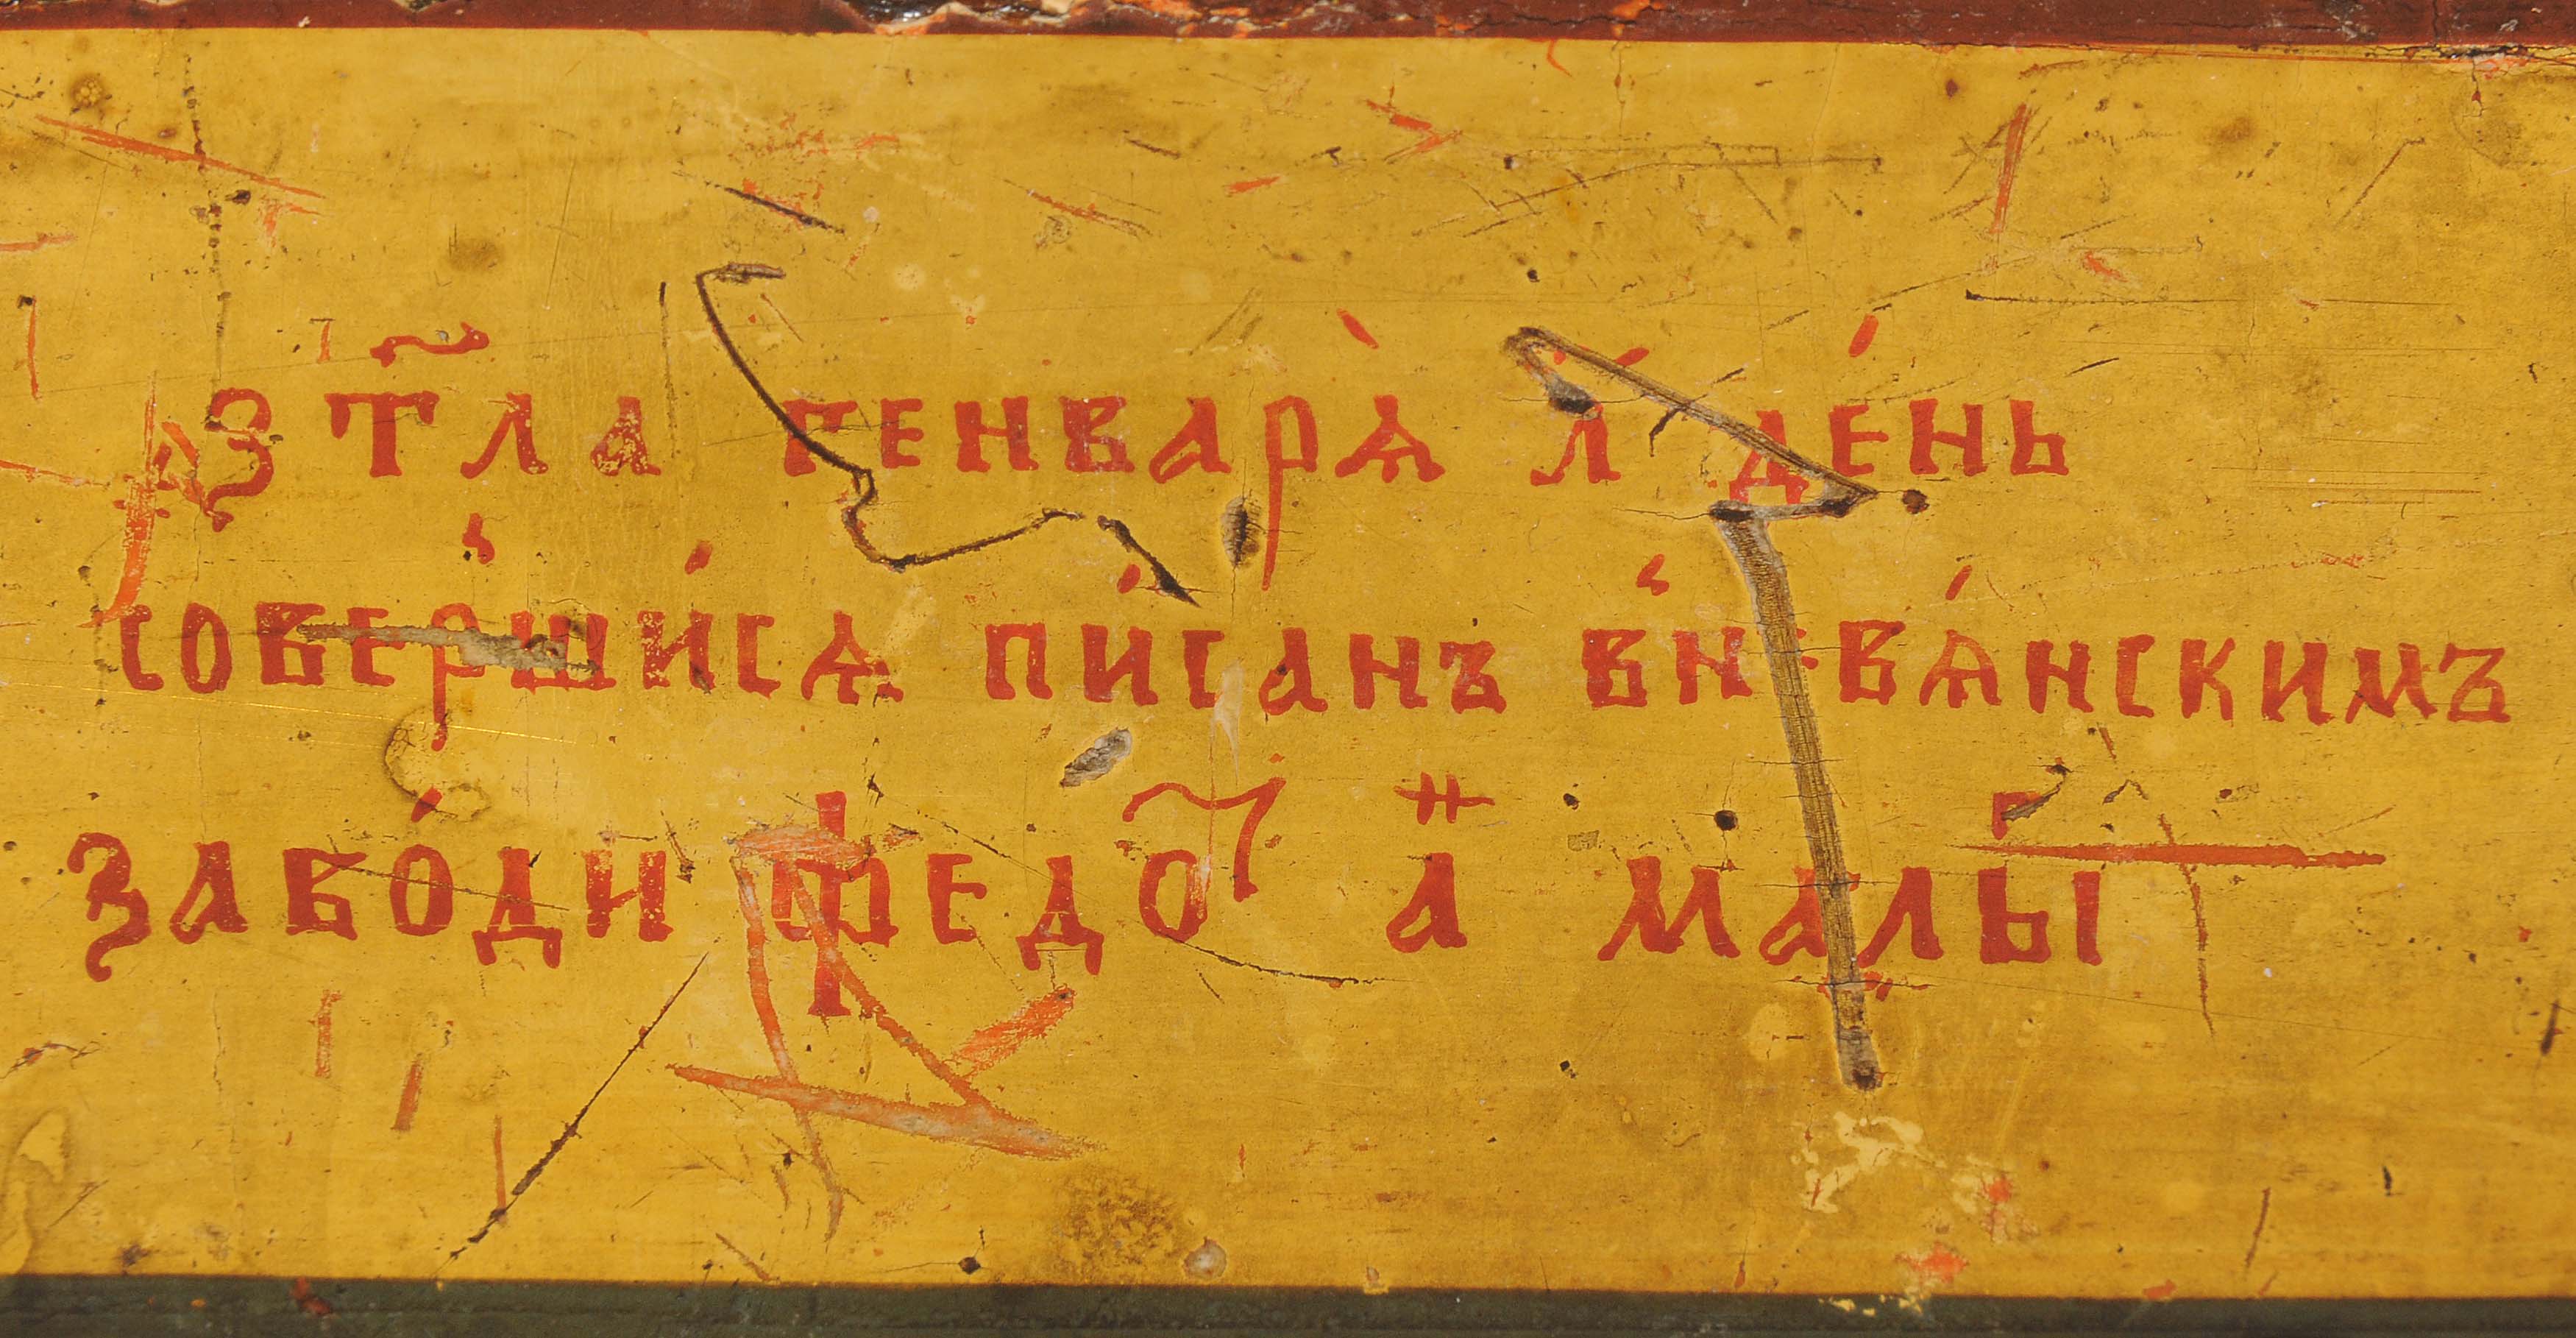 ҂зт҃ла генварѧ̀ л́ де́нь
сове́рши́сѧ пи́санъ в̾невѧ́нскимъ
заво́ди федоⷮ а малы̀